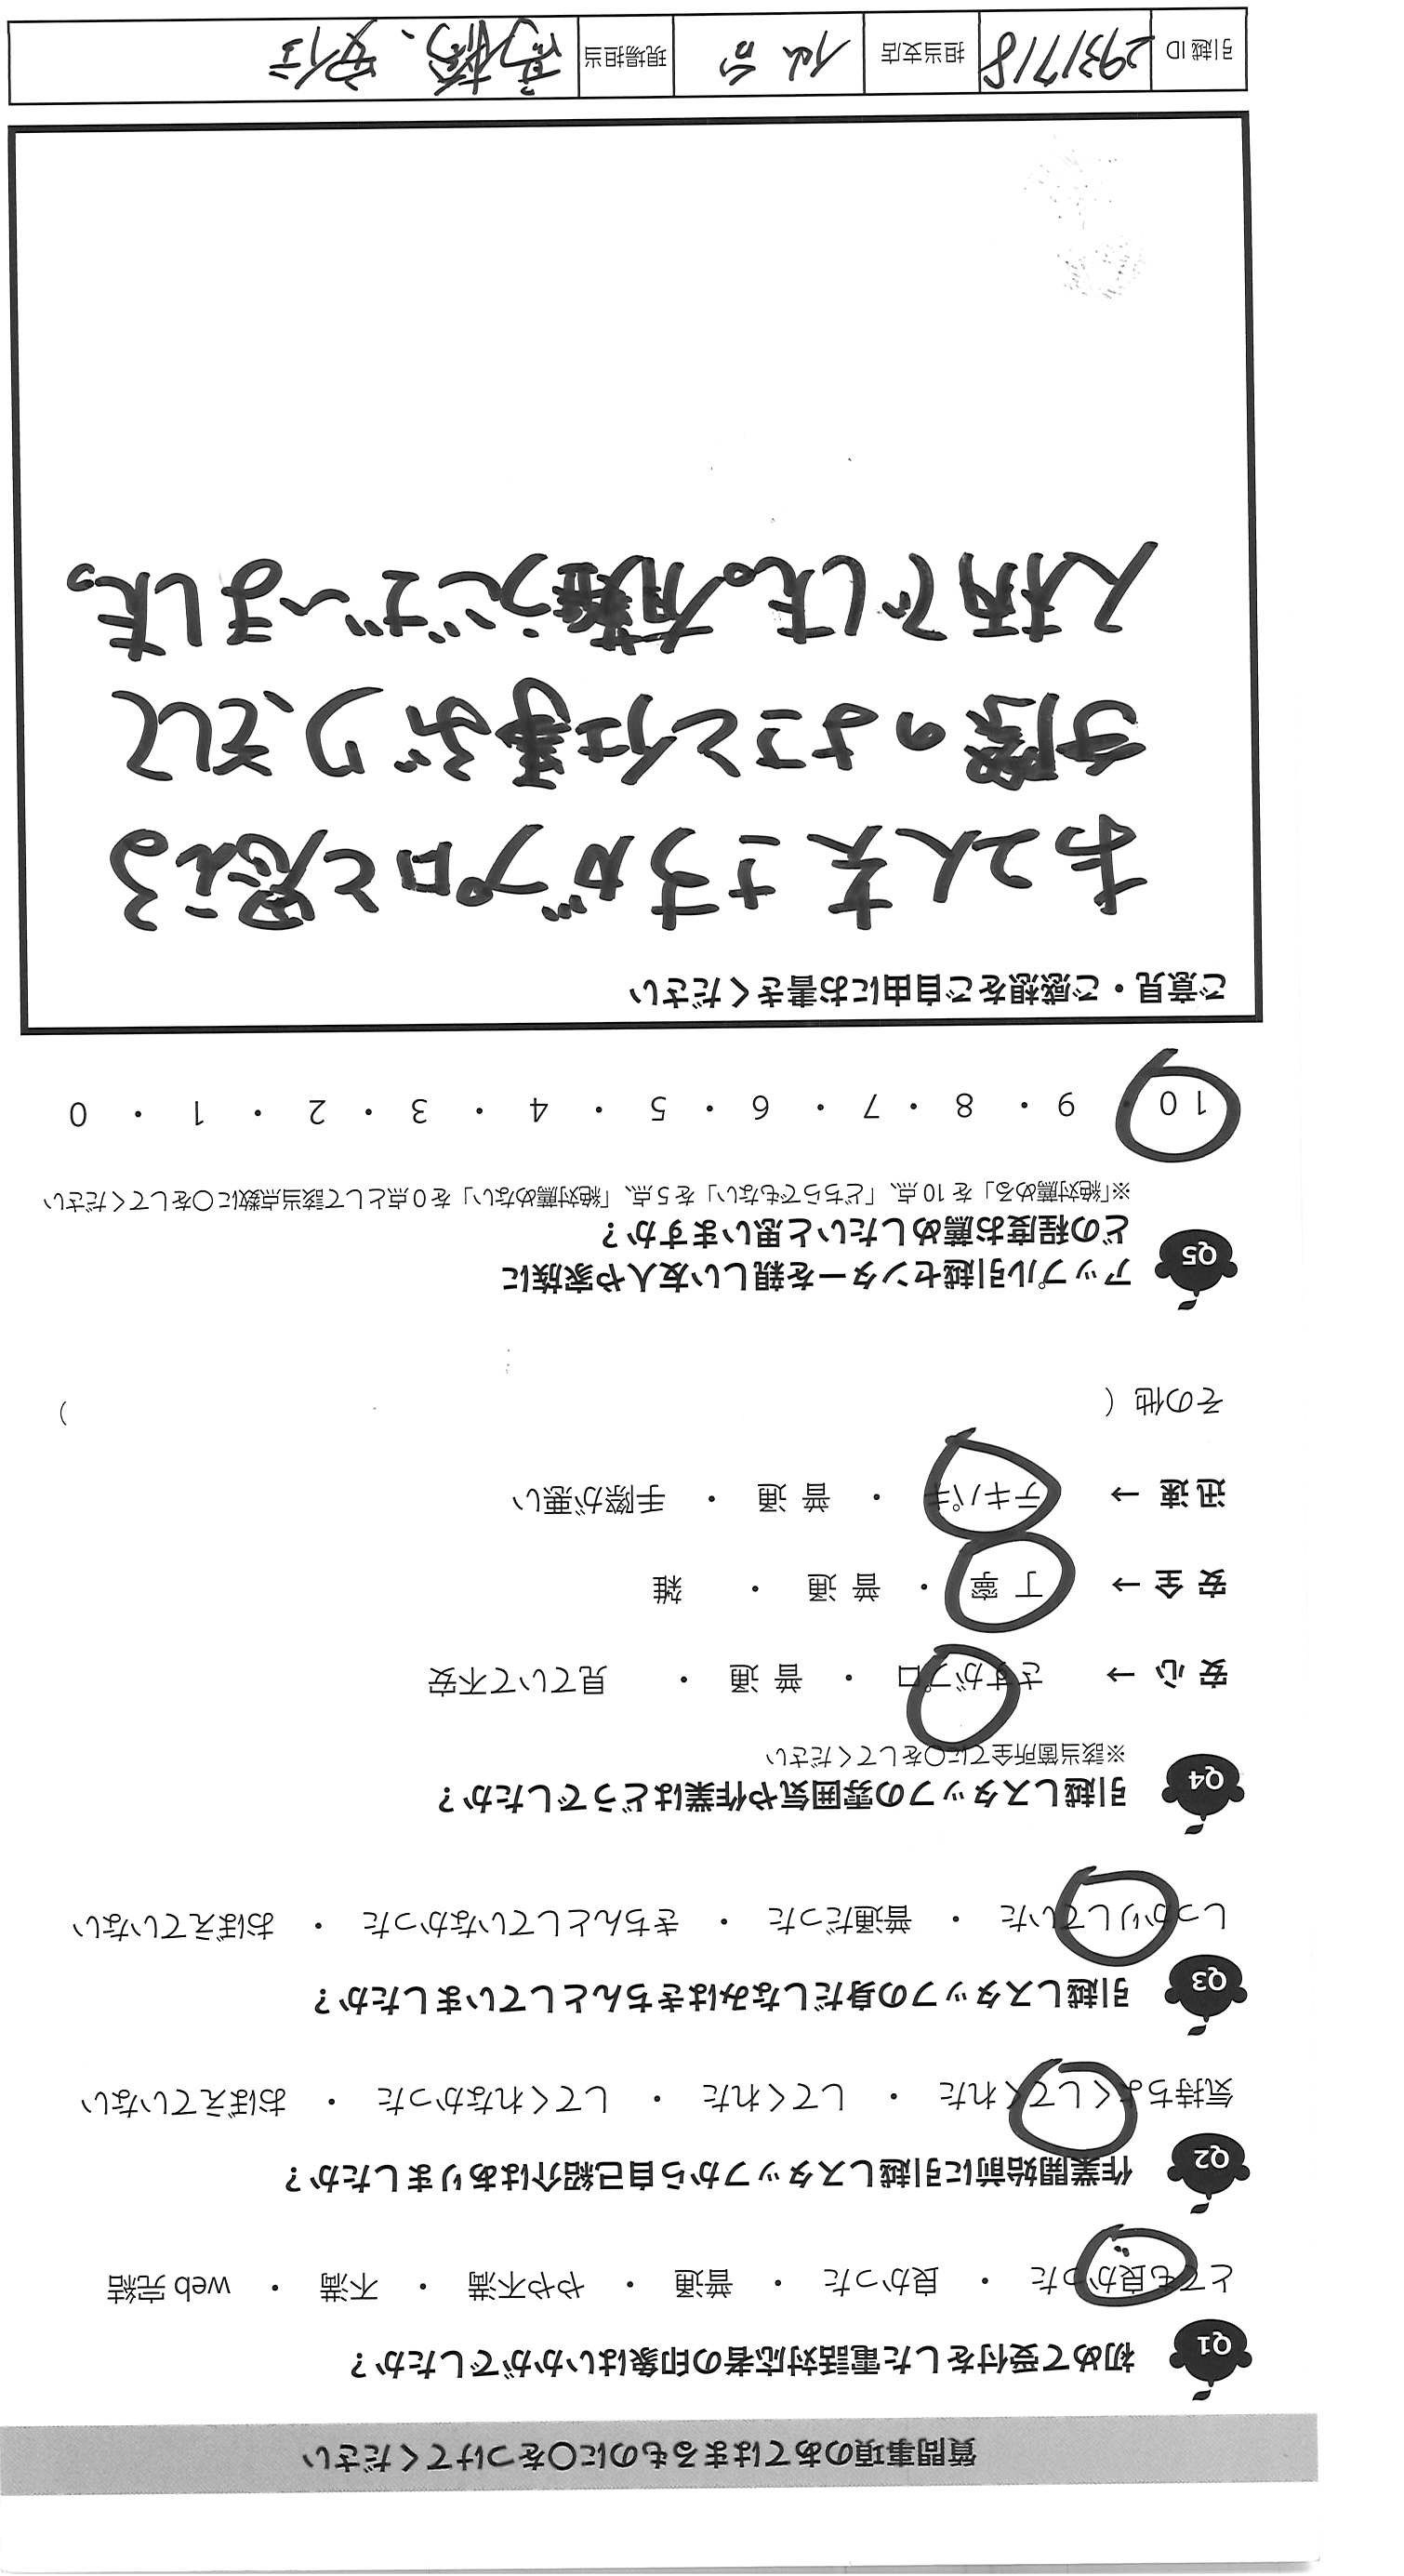 質問事項のあてはまるものに〇をつけてください
Q1 初めて受付をした電話対応者の印象はいかがでしたか？
とても良かった ・ 良かった ・ 普通 ・ やや不満 ・ 不満 ・ web 完結
Q2 作業開始前に引越しスタッフから自己紹介はありましたか？
気持ちよくしてくれた ・ してくれた ・ してくれなかった ・ おぼえていない
Q3 引越しスタッフの身だしなみはきちんとしていましたか？
しっかりしていた ・ 普通だった ・ きちんとしていなかった ・ おぼえていない
Q4 引越しスタッフの雰囲気や作業はどうでしたか？
※該当箇所全てに〇をしてください
安心 → さすがプロ ・ 普通 ・ 見ていて不安
安全 → 丁寧 ・ 普通 ・ 雑
迅速 → テキパキ ・ 普通 ・ 手際が悪い
その他（ ）
Q5 アップル引越センターを親しい友人や家族に
どの程度お薦めしたいと思いますか？
※「絶対薦める」を 10 点、「どちらでもない」を 5 点、「絶対薦めない」を 0 点として該当点数に〇をしてください
10 ・ 9 ・ 8 ・ 7 ・ 6 ・ 5 ・ 4 ・ 3 ・ 2 ・ 1 ・ 0
ご意見・ご感想をご自由にお書きください
お2人共さすがプロと思える
手際のよさと仕事ぶり、そして
人柄でした。有難うございました。
引越 ID 2931718 担当支店 仙台 現場担当 高橋、